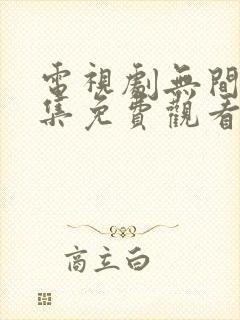 電視劇無間
集免費觀看
商立白